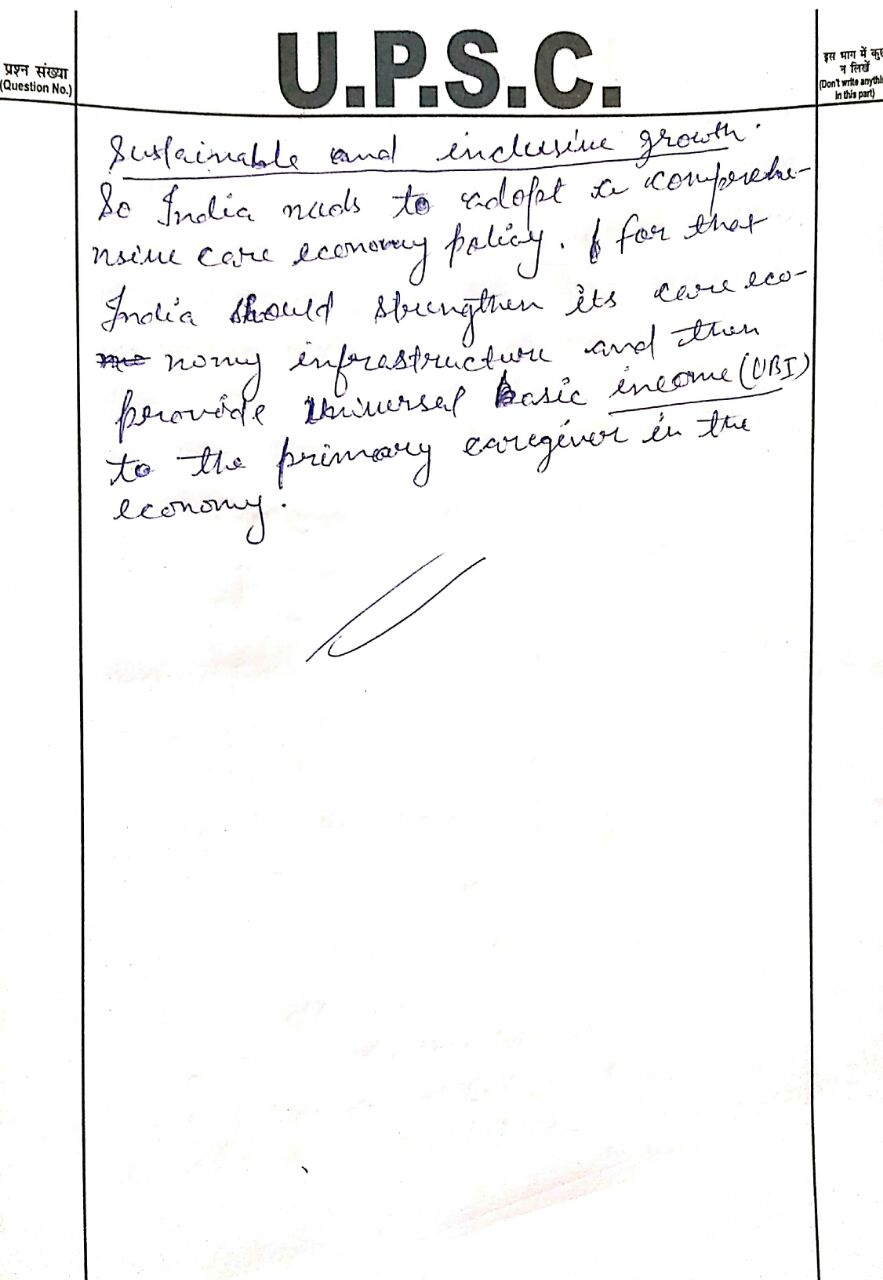 U.P.S.C.
प्रश्न संख्या
(Question No.)
इस भाग में कुछ
न लिखें
(Don't write anythi
in this part)
Sustainable and inclusive growth.
So India needs to adopt a comprehe-
nsive care economy policy. for that
India should strengthen its care eco-
nomy infrastructure and then
provide Universal basic income (UBI)
to the primary caregiver in the
economy.